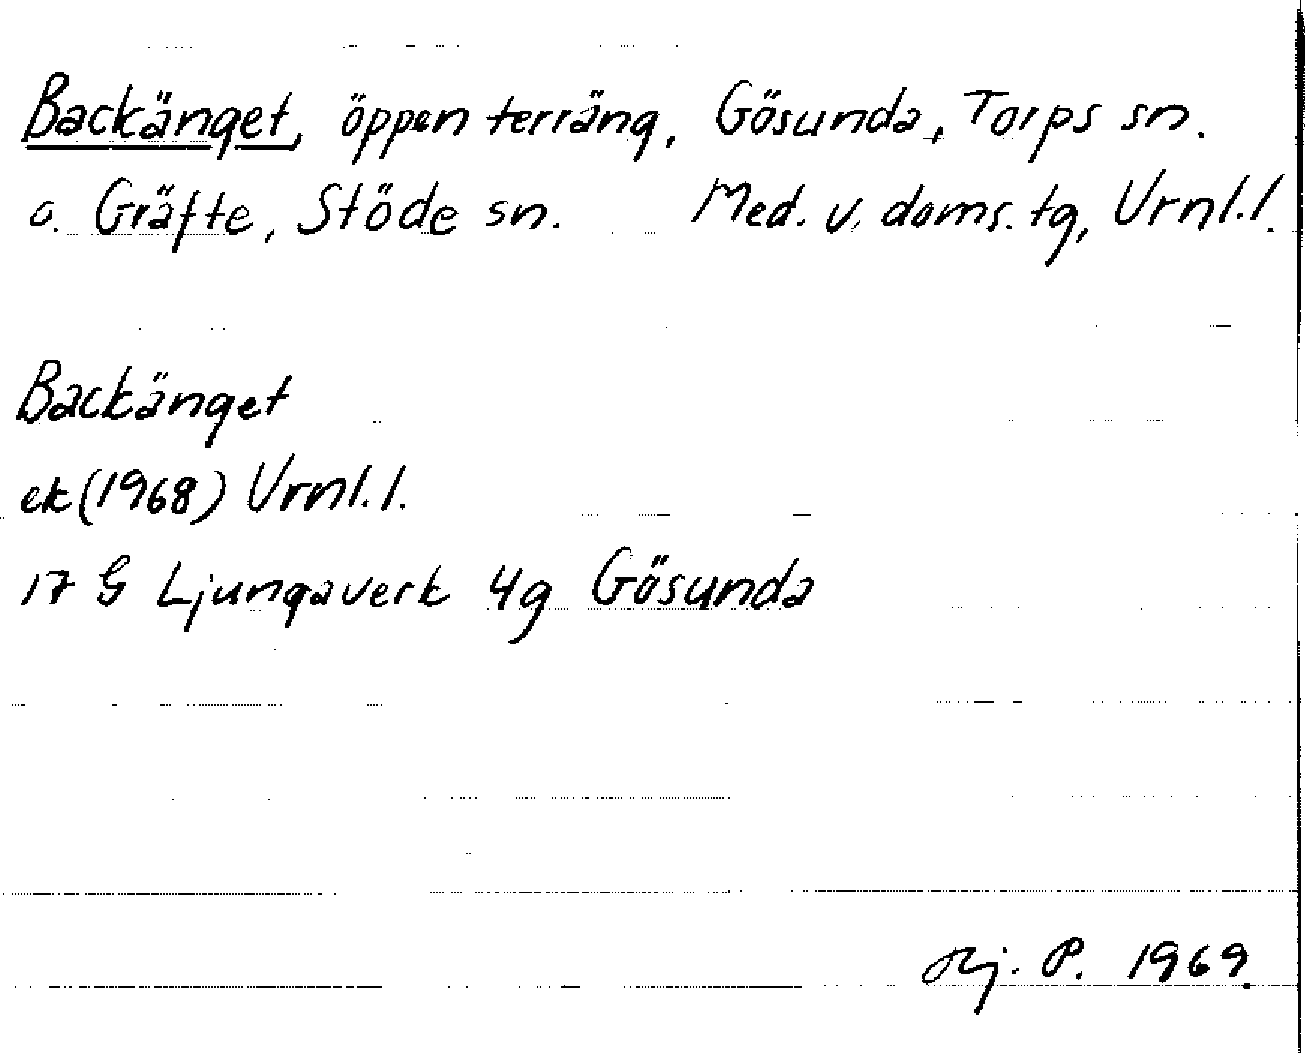 Backänget, öppen terräng, Gösunda, Torps sn.
o. Gräfte, Stöde sn. Med. v. doms. tg, Vrnl.l.
Backänget
ek (1968) Vrnl.l.
17 G Ljungaverk 4g Gösunda
Hj. P. 1969.